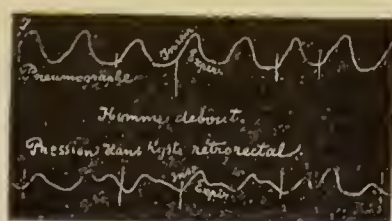 Inspir
Expir
Pneumographe
Homme debout.
Pression dans Kyste rétrorectal.
Insp
Expir